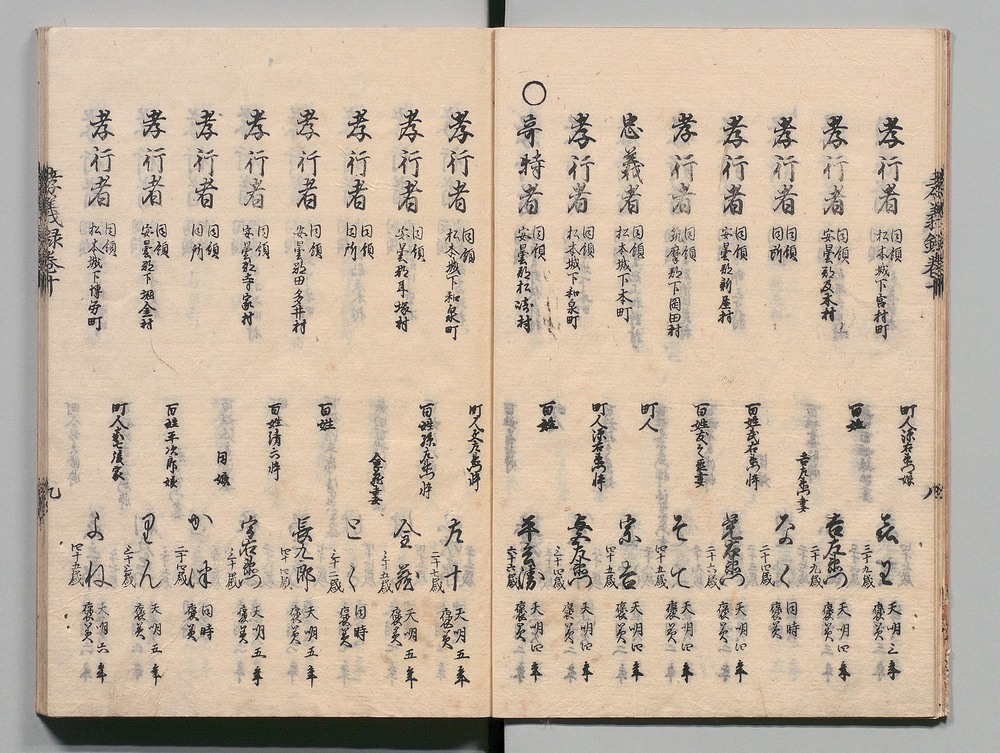 孝義録巻十
八
孝行者 同領 松本城下宮村町 町人源右衛門娘 二十九歳 天明三年 褒美
孝行者 同領 安曇郡成本村 百姓 吉左衛門 二十九歳 天明四年 褒美
孝行者 同領 同所 吉左衛門妻 なく 二十四歳 同時 褒美
孝行者 同領 安曇郡新屋村 百姓武右衛門忰 二十六歳 天明四年 褒美
孝行者 同領 筑摩郡下岡田村 百姓友之丞妻 そて 四十五歳 天明四年 褒美
忠義者 同領 松本城下本町 町人 宗吉 四十五歳 天明四年 褒美
孝行者 同領 松本城下和泉町 町人源右衛門忰 与左衛門 三十四歳 天明四年 褒美
○奇特者 同領 安曇郡松崎村 百姓 六十六歳 天明四年 褒美
孝行者 同領 松本城下和泉町 町人文左衛門忰 左十 二十七歳 天明五年 褒美
孝行者 同領 安曇郡耳塚村 百姓孫左衛門忰 金蔵 三十五歳 天明五年 褒美
孝行者 同領 同所 金蔵妻 とく 三十二歳 同時 褒美
孝行者 同領 安曇郡田多井村 百姓 長九郎 四十四歳 天明五年 褒美
孝行者 同領 安曇郡寺家村 百姓清六忰 宇右衛門 三十四歳 天明五年 褒美
孝行者 同領 同所 同娘 二十四歳 同時 褒美
孝行者 同領 安曇郡下堀金村 百姓平次郎娘 りん 三十三歳 天明五年 褒美
孝行者 同領 松本城下博労町 町人喜七後家 よね 四十五歳 天明六年 褒美
孝義録巻十
九